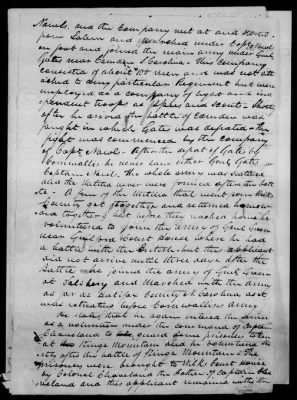 Nard, and the Company met at and
from Salem and Marched under Capt Nard
on foot and joined the main army under Genl
Gates near Camden S Carolina. This Company
consisted of about 100 men and was not att
ached to any particular Regiment but were
employed as a company of light and ind
ependent troops as Spies and Scouts. Short
after he arrived the battle of Camden was
fought in which Gates was defeated. The
fight was commenced by the Company
of Capt Nard. After the defeat of Gates by
Cornwallis he never saw either Genl Gates or
Captain Nard. The whole army was scattered
and the Militia never were joined after the batt
le. A few of the Militia that went from
County got together and returned homew
ard together, but before they reached home he
volunteered to join the army of Genl Green
near Guilford Court house where he had
a battle with the British. but the applicant
did not arrive until three days after the
battle. He joined the army of Genl Green
at Salsbery and Marched with the army
as far as Halifax County N Carolina, as it
was retreating before Cornwallis army.
He states that he again entered the service
as a volunteer under the command of Captain
Cleaveland to guard some prisoners taken
at the Kings Mountain and he volunteered
after the battle of Kings Mountain. The
prisoners were brought to Wilks Court house
by Colonel Cleaveland the father of Captain Cle
veland and this applicant remained with the